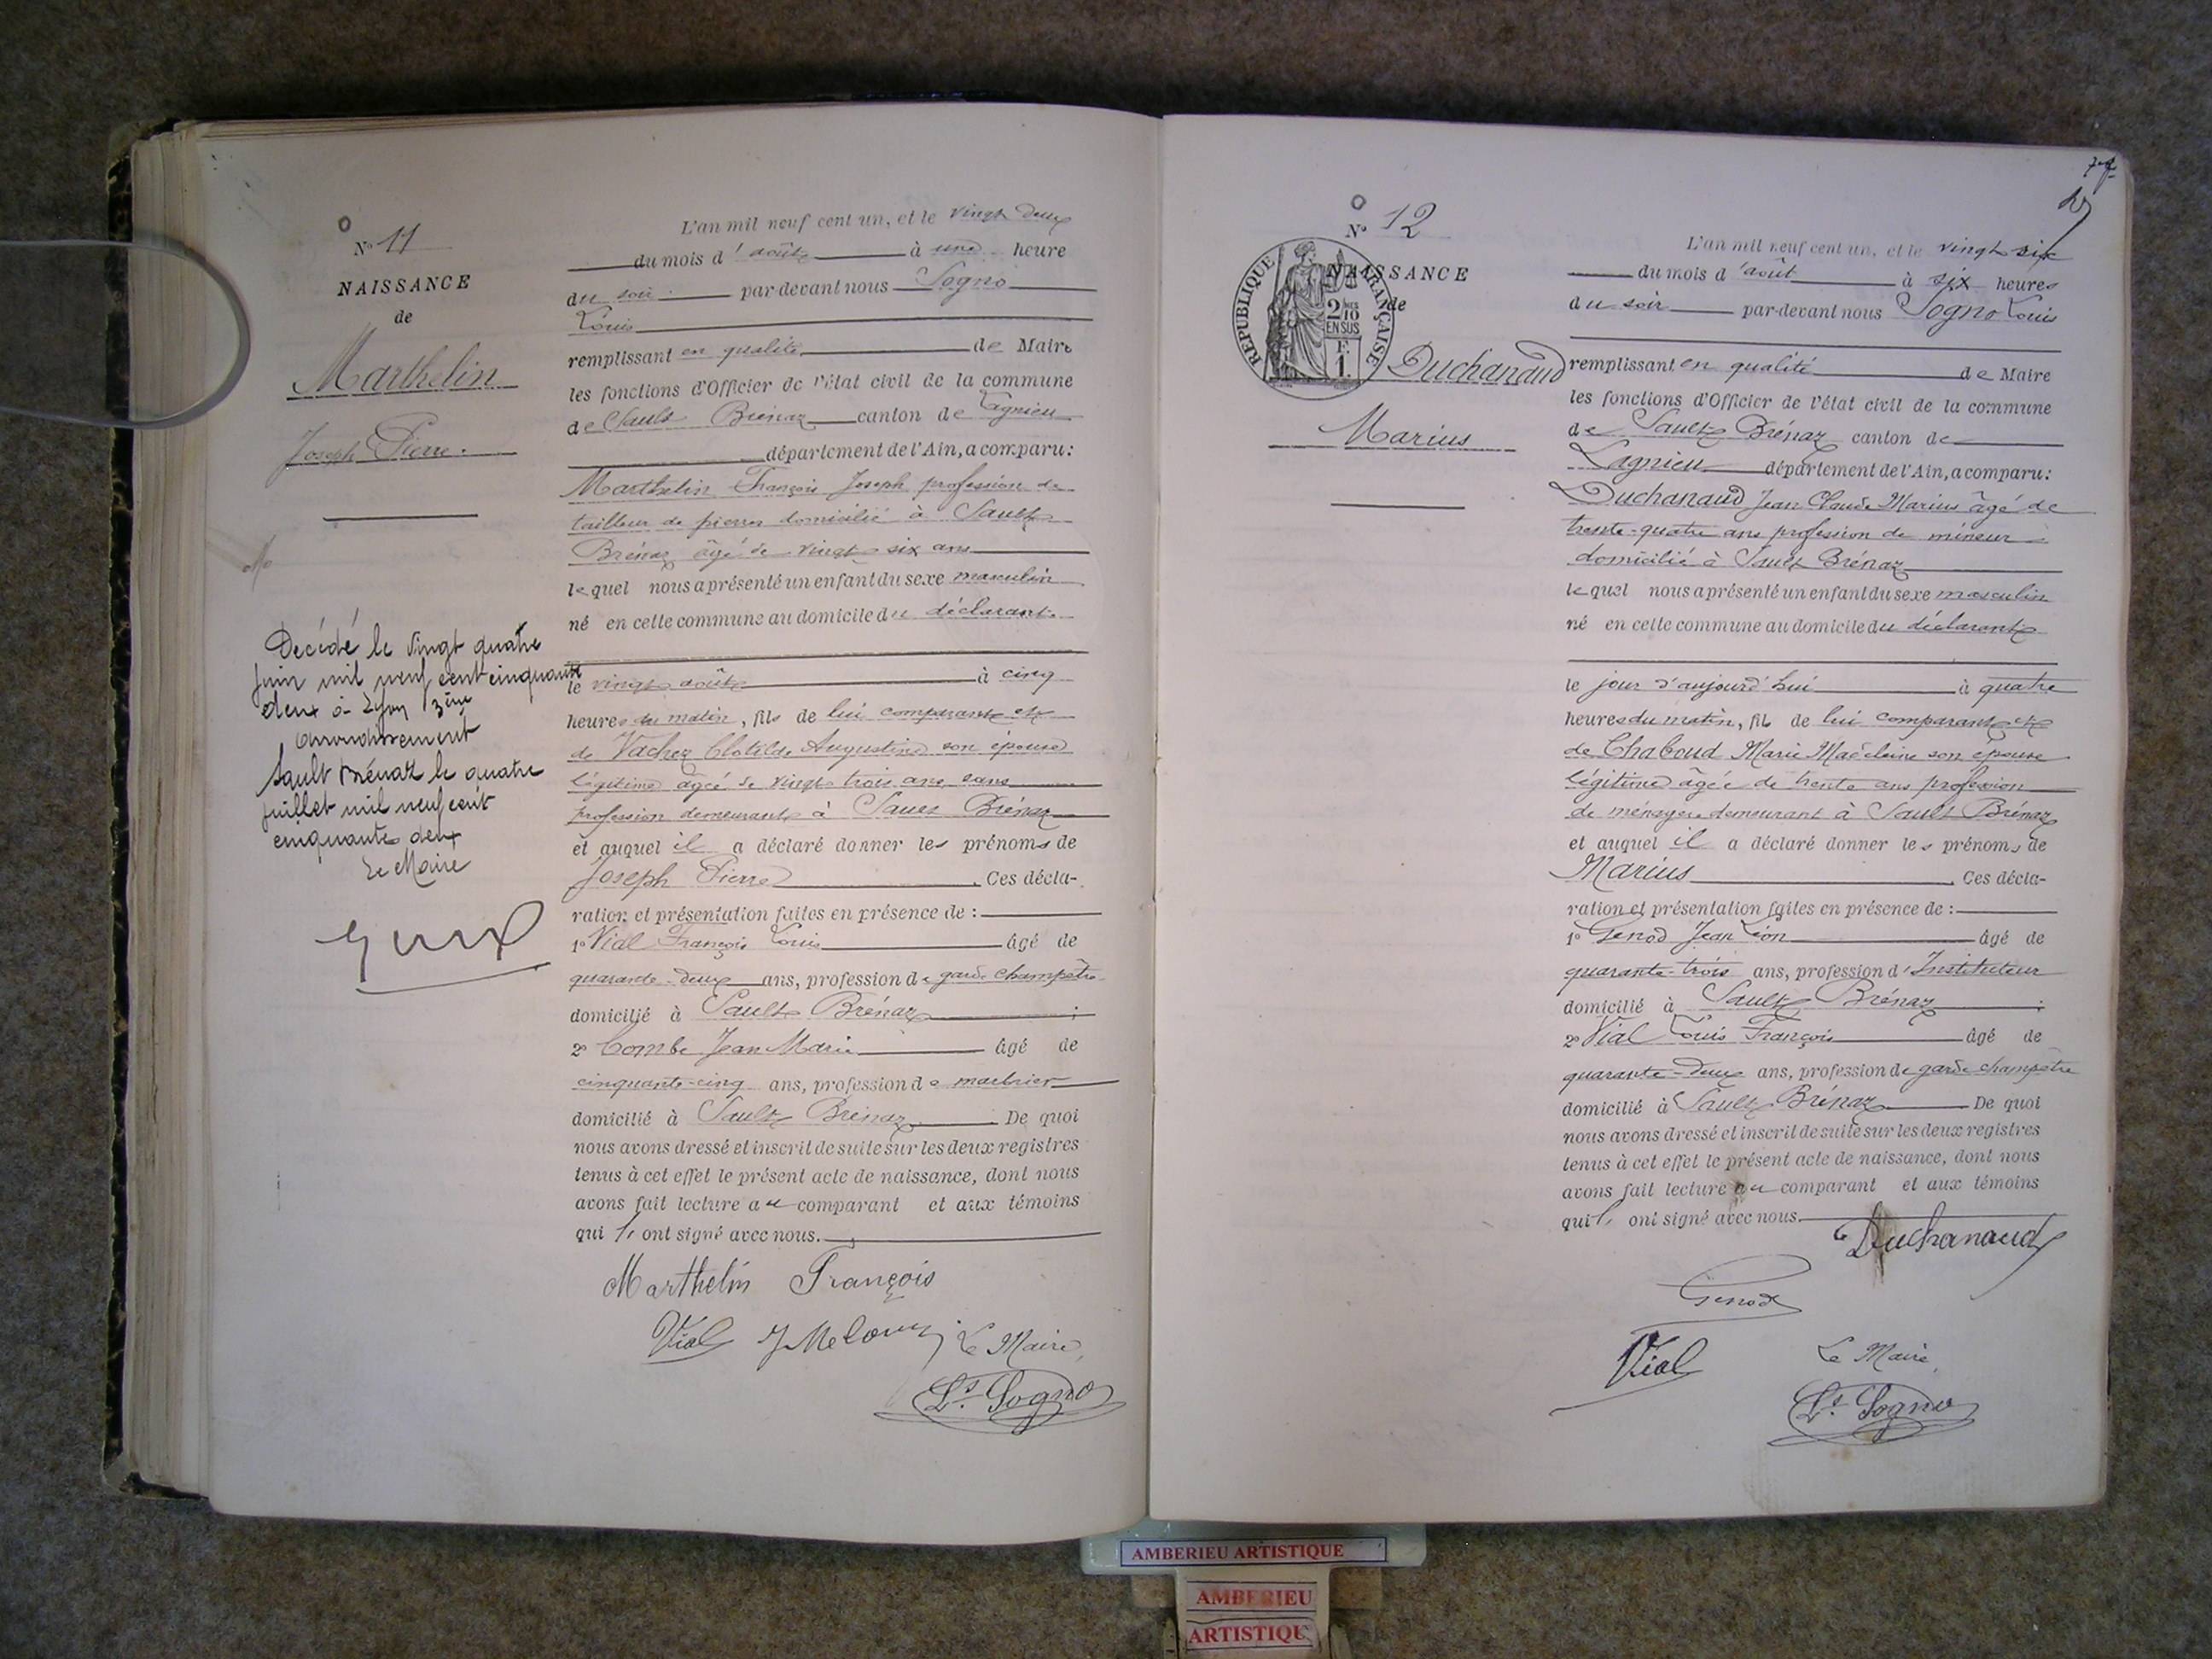 N° 11
NAISSANCE
de
Marthelin
Joseph Pierre.
Decédé le vingt quatre
juin mil neuf cent cinquante
deux à Lyon 3ème
arrondissement
Sault Brénaz le quatre
juillet mil neuf cent
cinquante deux
Le Maire
L'an mil neuf cent un, et le vingt deux
du mois d'août à une heure
du soir par-devant nous Sogno
Louis
remplissant en qualité de Maire
les fonctions d'Officier de l'état civil de la commune
de Sault Brénaz canton de Lagnieu
département de l'Ain, a comparu:
Marthelin François Joseph profession de
tailleur de pierres domicilié à Sault
Brénaz âgé de vingt-six ans
lequel nous a présenté un enfant du sexe masculin
né en cette commune au domicile du déclarant
le vingt août à cinq
heures du matin, fils de lui comparant et
de Vacher Clotilde Augustine son épouse
légitime âgée de vingt trois ans, sans
profession demeurant à Sault Brénaz
et auquel il a déclaré donner les prénoms de
Joseph Pierre. Ces décla-
ration et présentation faites en présence de :
1° Vial François Louis âgé de
quarante-deux ans, profession de garde champêtre
domicilié à Sault Brénaz ;
2° Combe Jean Marie âgé de
cinquante-cinq ans, profession de marbrier
domicilié à Sault Brénaz. De quoi
nous avons dressé et inscrit de suite sur les deux registres
tenus à cet effet le présent acte de naissance, dont nous
avons fait lecture au comparant et aux témoins
qui l' ont signé avec nous.
Marthelin François
Vial Le Maire,
Ls. Sogno
N° 12
NAISSANCE
de
REPUBLIQUE FRANÇAISE
2/10
EN SUS
F.
1.
Duchanaud
Marius
L'an mil neuf cent un, et le vingt six
du mois d'août à six heures
du soir par-devant nous Sogno Louis
remplissant en qualité de Maire
les fonctions d'Officier de l'état civil de la commune
de Sault Brénaz canton de
Lagnieu département de l'Ain, a comparu:
Duchanaud Jean Claude Marius âgé de
trente-quatre ans profession de mineur
domicilié à Sault Brénaz
lequel nous a présenté un enfant du sexe masculin
né en cette commune au domicile du déclarant
le jour d'aujourd'hui à quatre
heures du matin, fils de lui comparant et
de Chaboud Marie Madeleine son épouse
légitime âgée de trente ans profession
de ménagère demeurant à Sault Brénaz
et auquel il a déclaré donner les prénoms de
Marius. Ces décla-
ration et présentation faites en présence de :
1° Genod Jean Léon âgé de
quarante-trois ans, profession d'Instituteur
domicilié à Sault Brénaz ;
2° Vial Louis François âgé de
quarante-deux ans, profession de garde champêtre
domicilié à Sault Brénaz De quoi
nous avons dressé et inscrit de suite sur les deux registres
tenus à cet effet le présent acte de naissance, dont nous
avons fait lecture au comparant et aux témoins
qui l' ont signé avec nous.
Duchanaud
Genod
Vial Le Maire,
Ls. Sogno
AMBERIEU ARTISTIQUE
AMBERIEU
ARTISTIQUE